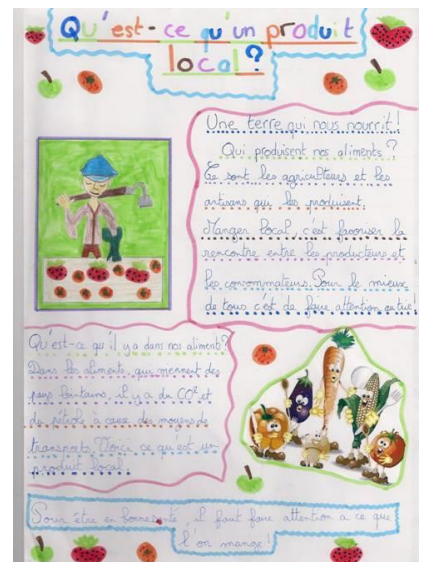 Qu'est-ce qu'un produit
local?
Une terre qui nous nourrit!
Qui produisent nos aliments?
Ce sont les agriculteurs et les
artisans qui les produisent.
Manger local, c'est favoriser la
rencontre entre les producteurs et
les consommateurs. Pour le mieux
de tous c'est de faire attention
Qu'est-ce qu'il y a dans nos aliments?
Dans les aliments, qui viennent des
pays lointains, il y a du CO² et
du pétrole à cause des moyens de
transports. Voici ce qu'est un
produit local.
Pour être en bonne santé, il faut faire attention à ce que
l'on mange!